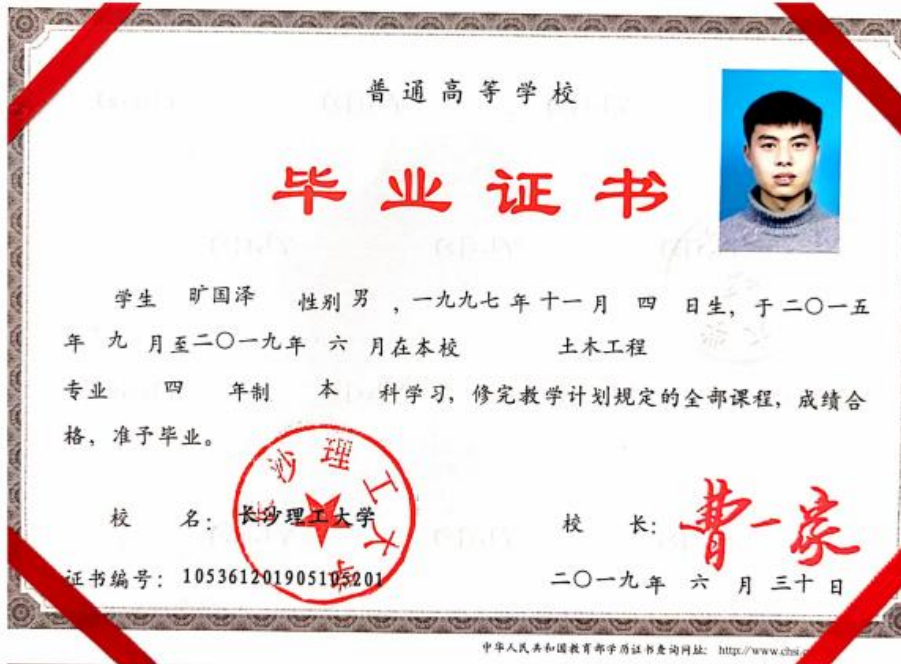 普通高等学校
毕业证书
学生 旷国泽 性别 男 ，一九九七 年 十一 月 四 日生，于 二〇一五
年 九 月至 二〇一九 年 六 月在本校 土木工程
专业 四 年制 本 科学习，修完教学计划规定的全部课程，成绩合
格，准予毕业。
校 名：长沙理工大学 校 长：曹一家
证书编号：105361201905105201 二〇一九 年 六 月 三十 日
中华人民共和国教育部学历证书查询网址：http://www.chsi.c